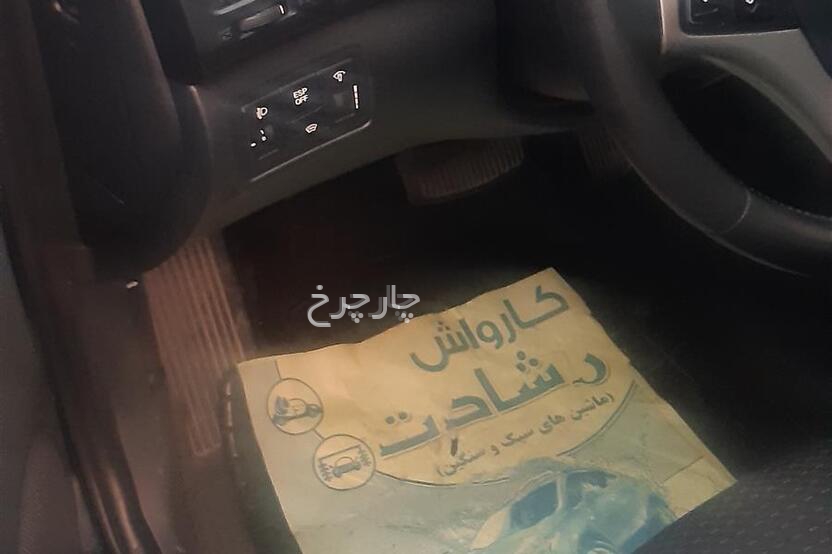 ESP
OFF
چارچرخ
کارواش
رشادت
(ماشین های سبک و سنگین)